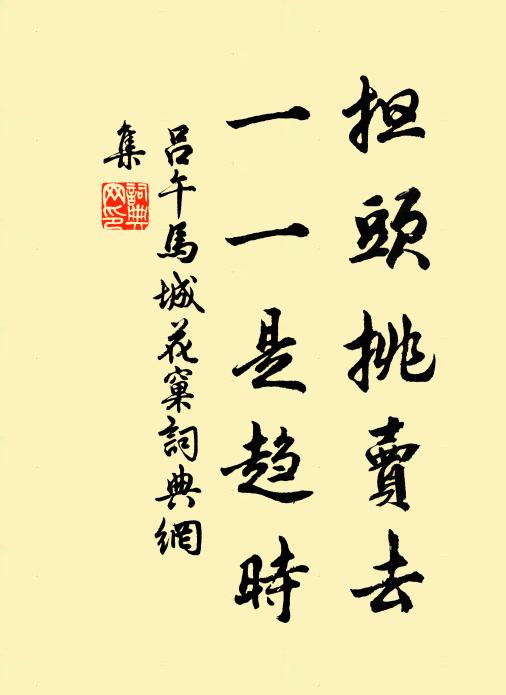 担頭挑賣去
一一是趋時
吕午馬城花窠詞典網
集
詞典網印